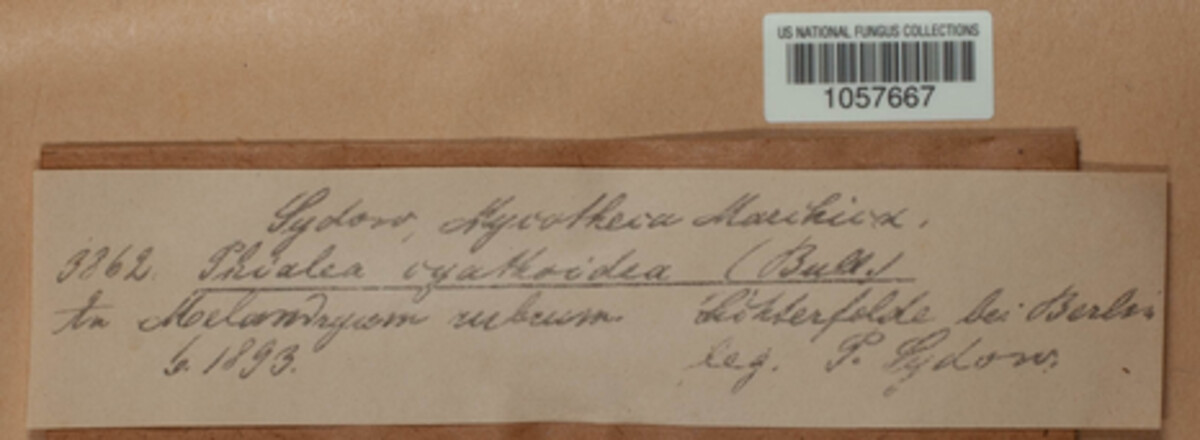 US NATIONAL FUNGUS COLLECTIONS
1057667
Sydow, Mycotheca Marchica.
3862. Phialea cyathoidea (Bull.)
An Melandryum rubrum. Lichterfelde bei Berlin
6. 1893. leg. P. Sydow.